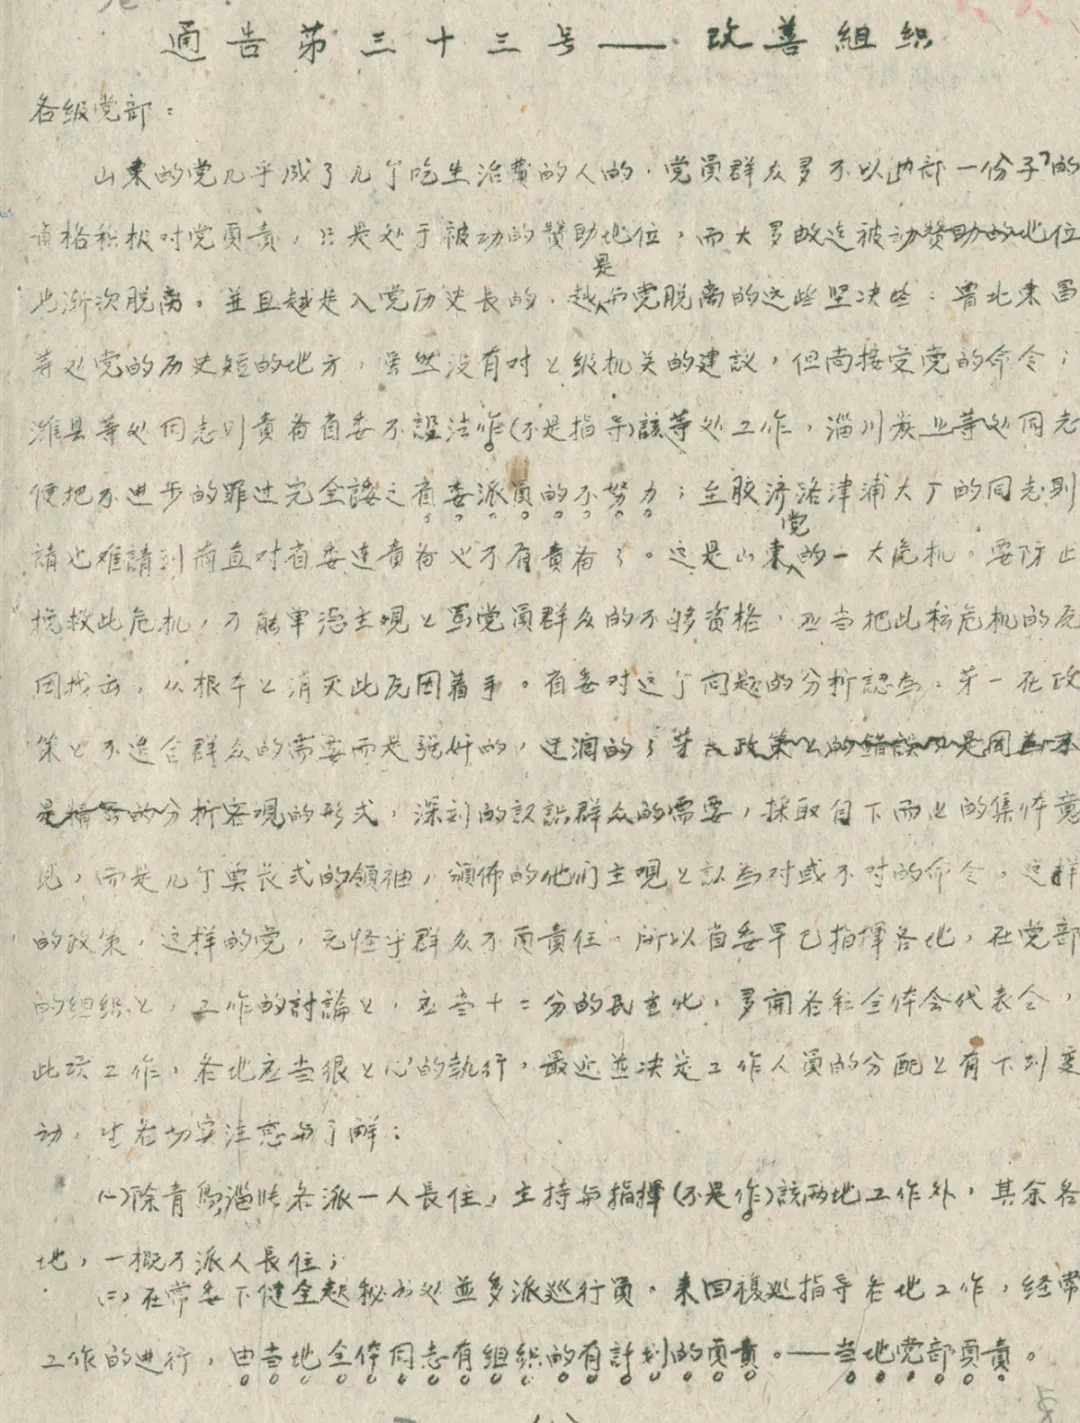 通告第三十三号——改善組织
各级党部：
山東的党几乎成了几个吃生活費的人的，党員群众多不以内部一份子的
資格积极对党負責，只是处于被动的赞助地位，而大多数连被动赞助的地位
也渐次脱离。並且越是入党历史長的，越是而党脱离的这些坚决些：鲁北東昌
等处党的历史短的地方，虽然没有对上级机关的建議，但尚接受党的命令；
潍县等处同志则責备省委不設法作(不是指导)該等处工作，淄川炭业等处同志
便把不进步的罪过完全諉之省委派員的不努力；至胶济洛津浦大厂的同志则
請也难請到簡直对省委連責备也不有責备了。这是山東党的一大危机。要防止
挽救此危机，不能单凭主观上罵党員群众的不够資格，应当把此种危机的原
因找出，从根本上消灭此原因着手。省委对这个问题的分析認為，第一在政
策上不適合群众的需要而是強奸的，
的分析客观的形式，深刻的認識群众的需要，採取自下而上的集体意
见，而是几个家長式的領袖，頒佈的他们主观上認為对或不对的命令。这样
的政策，这样的党，无怪乎群众不負責任。所以省委早已指揮各地，在党部
的组织上，工作的討論上，应当十二分的民主化，多開各种全体会代表会，
此項工作，各地应当很上心的執行，最近並决定工作人員的分配上有下列变
动，望各切实注意与了解：
(一)除青島淄張各派一人長住，主持与指揮(不是作)該两地工作外，其余各
地，一概不派人長住；
(二)在常委下健全起秘书处並多派巡行員。来回複巡指导各地工作，经常
工作的进行，由当地全体同志有組織的有計划的負責。——当地党部負責。